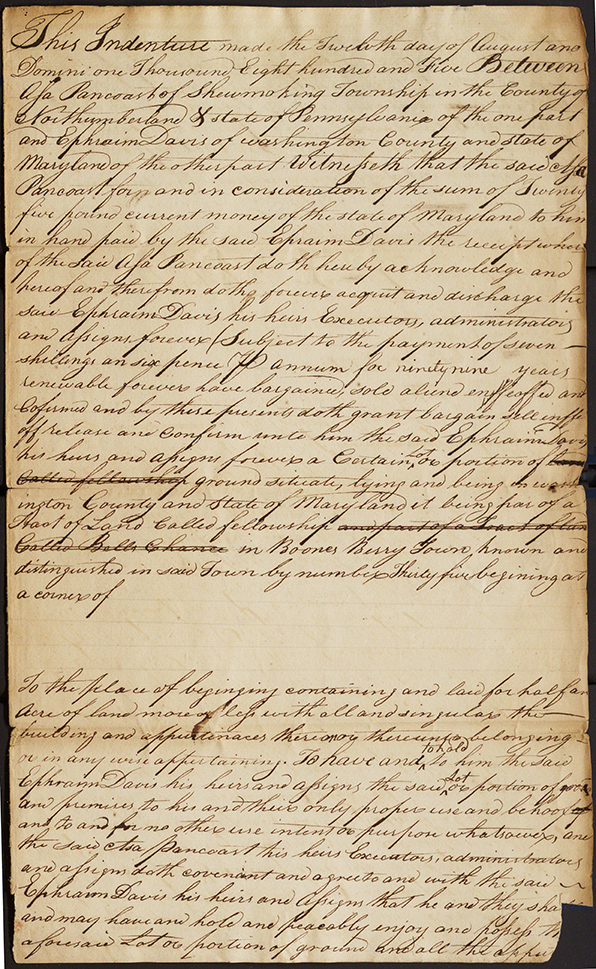 This Indenture made the Twelvth day of August ano
Domini one Thousound Eight hundred and Five Between
Asa Pancoast of Shewmoking Township in the County of
Northumberland & state of Pennsylvania of the one part
and Ephraim Davis of washington County and State of
Maryland of the other part Witnesseth that the said Asa
Pancoast for and in consideration of the sum of Twenty
five pound current money of the state of Maryland to him
in hand paid by the said Epraim Davis the receipt
of the said Asa Pancoast doth hereby acknowledge and
hereof and therefrom doth forever acquit and discharge the
said Ephraim Davis his heirs Executors, administrators
and assigns forever (Subject to the payment of seven
shillings an six pence P annum for ninetynine years
renewable forever have bargained, sold aliend enffeoffed and
Cofirmed and by these presents doth grant bargain sell
off release and confirm unto him the said Ephraim Davis
his heirs and assigns forever a Certain Lot or portion of
Called fellowship ground situate, lying and being in wash
ington County and State of Maryland it being par of a
Tract of Land Called fellowship and part of a Tract of lan
Called Bells Chance in Boones Berry Town, known and
distinguished in said Town by number Thirty five begining at
a corner of
To the place of beginging containing and laid for half an
Acre of land more or less with all and singular the
building and appurtinaces there or thereunto belonging
or in any wise appertaining. To have and to hold to him the said
Ephraim Davis his heirs and assigns the said Lot or portion of
and premises to his and their only proper use and behoof
and to and for no other use intent or purpose whatsover, and
the said Asa Pancoast his heirs Executors, administrators
and assigns doth covenant and agree to and with the said
Ephraim Davis his heirs and assigns that he and they shall
and may have and hold and peacably enjoy and possess th
aforesaid Lot or portion of ground and all the appu